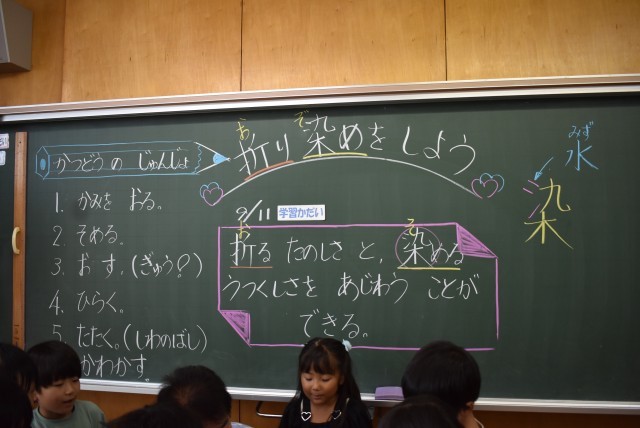 かつどうの じゅんじょ
1. かみを おる。
2. そめる。
3. おす。(ぎゅう?)
4. ひらく。
5. たたく。(しわのばし)
かわかす。
お ぞ
折り染めをしよう
9/11 学習かだい
お そ
折る たのしさ と、染める
うつくしさを あじわう ことが
できる。
みず
水
染